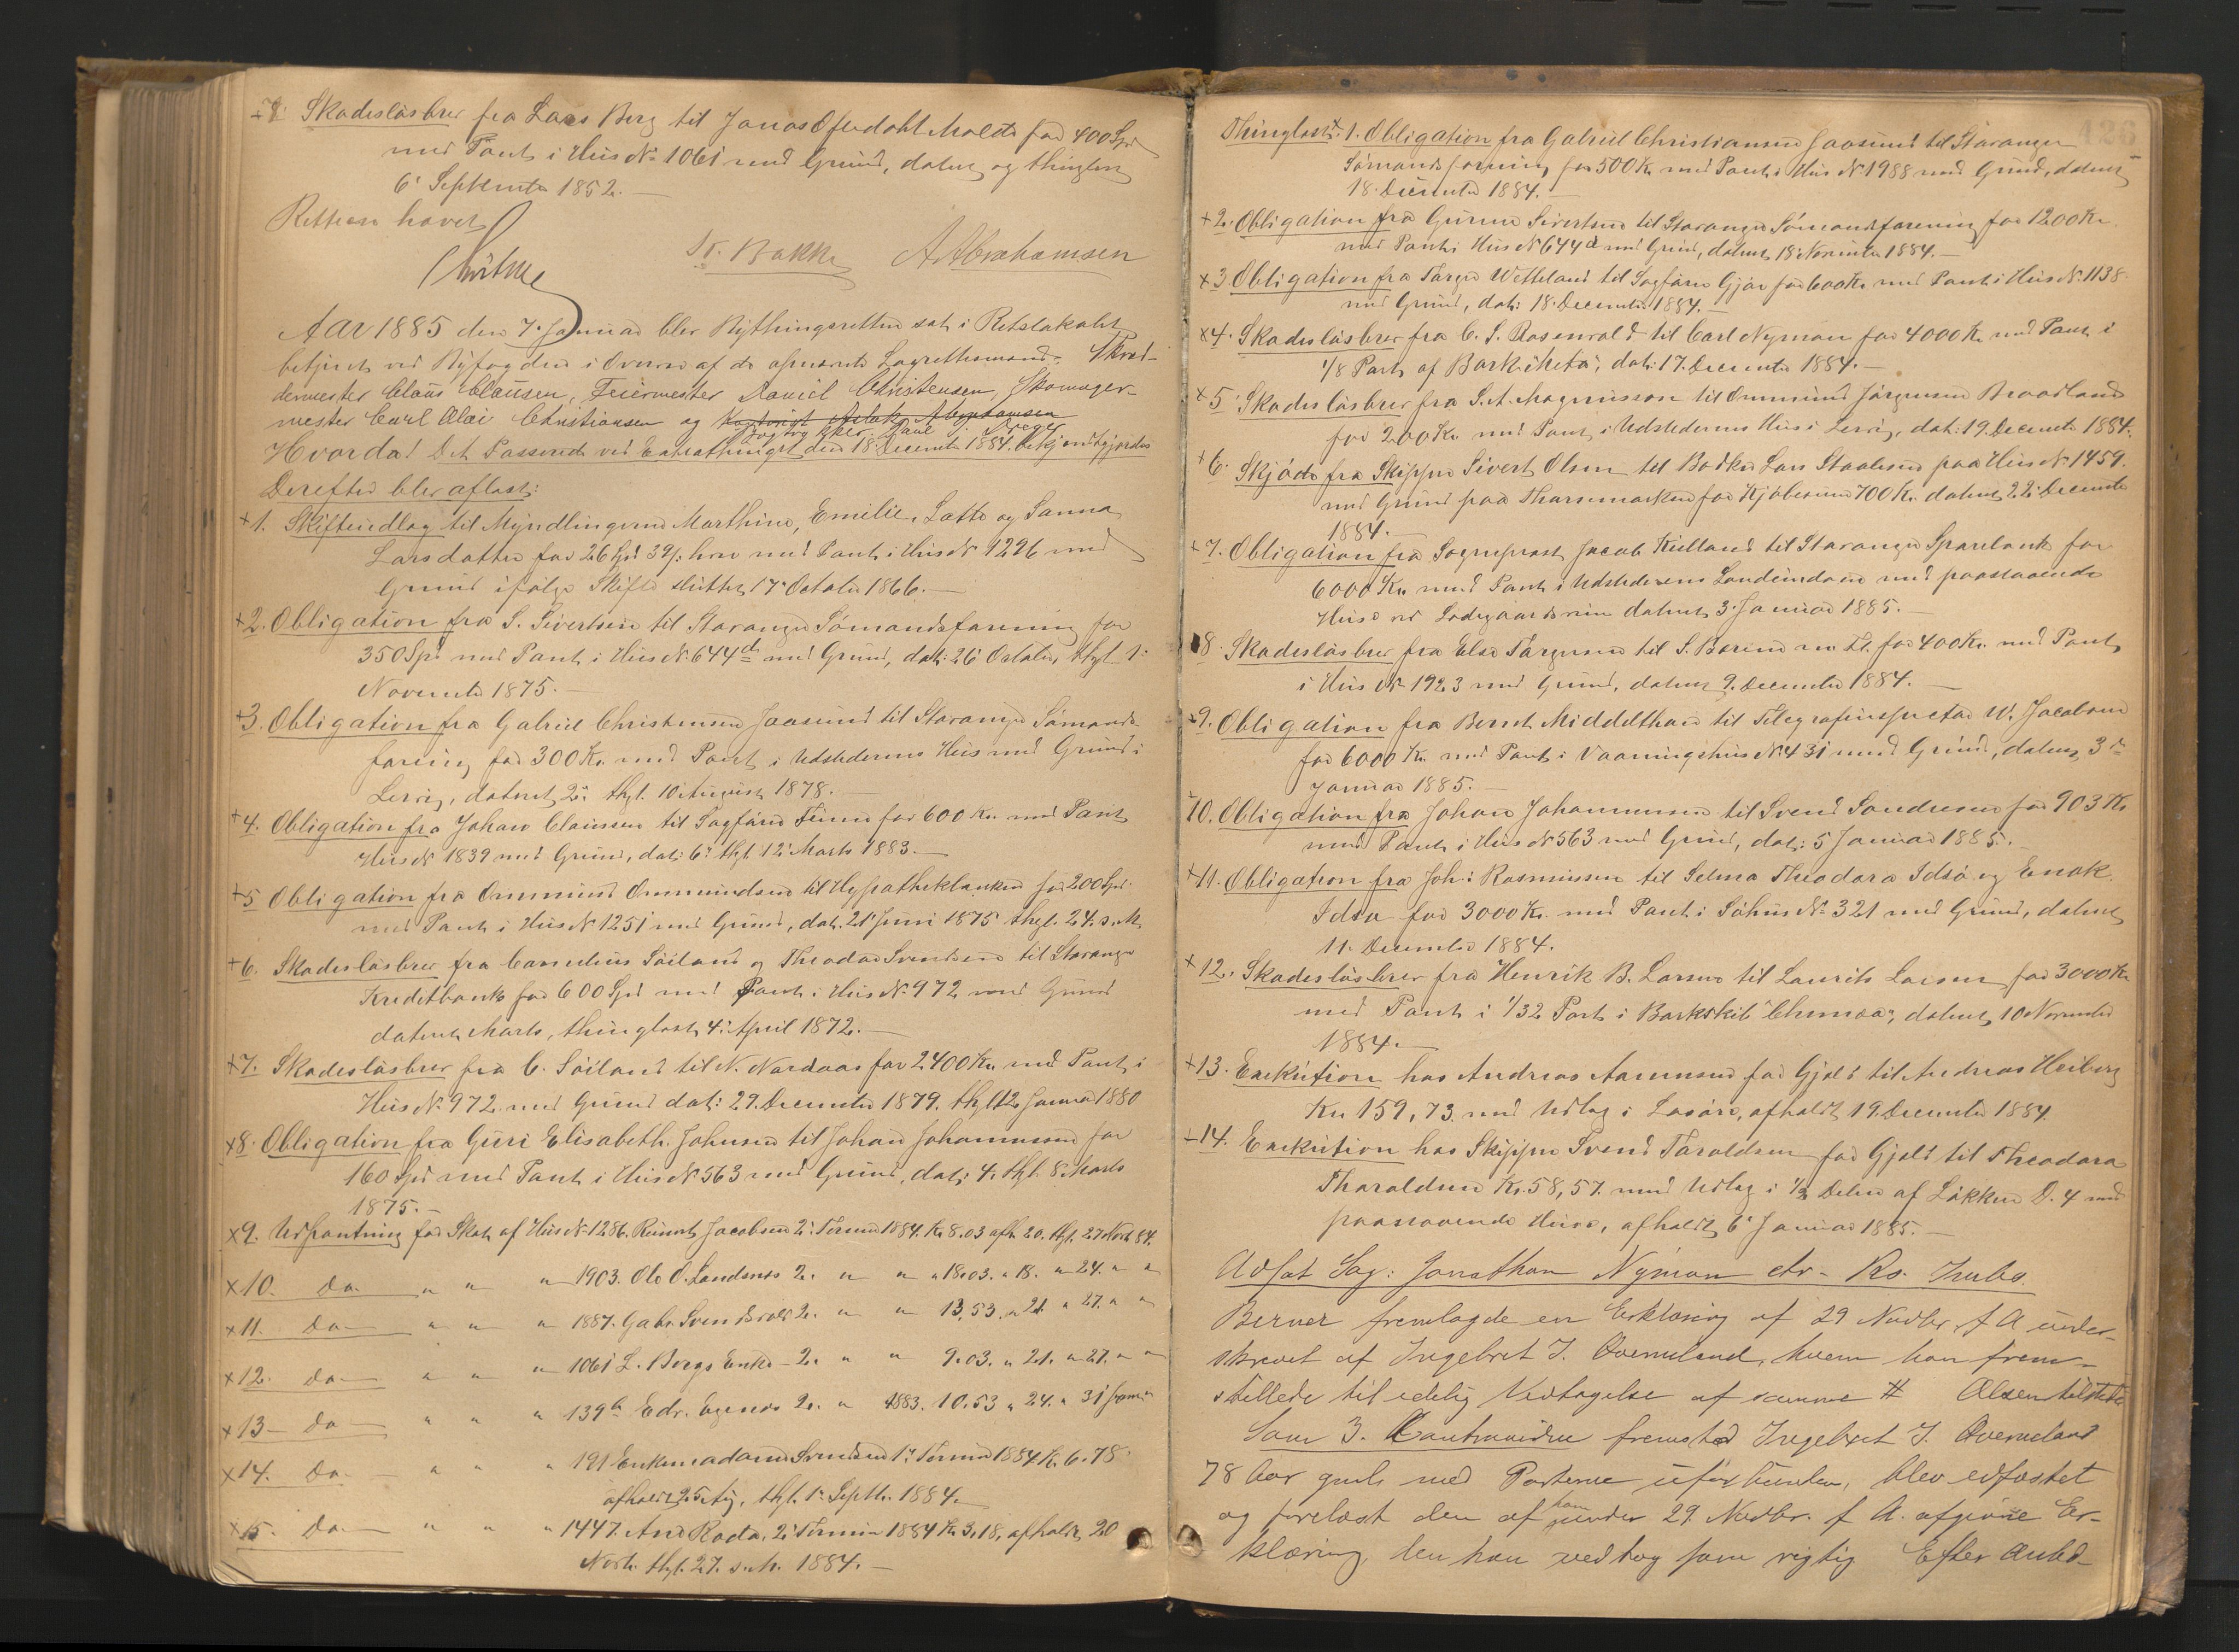 7. Skadesløsbrev fra Lars Berg til Jonas Oftedahl Malde for 400 Spd
med Pant i Hus No 1061 med Grund, dateret og thinglæst
6' September 1852. —
Retten hævet
St. Bakke A Abrahamsen
Aar 1885 den 7. Januar blev Bythingsretten sat i Retslokalet
betjent ved Byfogden i Overvær af de opnævnte Lagrettesmænd: Skræd-
dermester Claus Clausen, Feiermester Daniel Christensen, Skomager-
mester Carl Olai Christiansen og Aslak Abrahamsen
Bogtrykker Paul T. Dreyer
Hvorda! Det Passerede ved Extrathinget den 18 December 1884 bekjendtgjordes
Derefter blev aflæst:
+1. Skifteudlæg til Myndlingerne Marthine, Emilie, Lotte og Sanna
Larsdatter for 26 Spd 39 s. hver med Pant i Hus No 1296 med
Grund ifølge Skifte sluttet 17' October 1866. —
+2. Obligation fra S. Sivertsen til Stavanger Sömandsforening for
350 Spd med Pant i Hus No 644 d med Grund, dat: 26' October, thgl. 1'
November 1875. —
+3. Obligation fra Gabriel Christensen Jaasund til Stavanger Sömands-
forening for 300 Kr. med Pant i Udstederens Hus med Grund i
Lervig, dateret 2' thgl. 10 August 1878. —
+4. Obligation fra Johan Claussen til Sagförer Feinn for 600 Kr. med Pant
Hus No 1839 med Grund, dat: 6' thgl. 12' Marts 1883. —
+5 Obligation fra Ommund Ommundsen til Hypothekbanken for 200 Spd.
med Pant i Hus No 1251 med Grund, dat. 21' Juni 1875 thgl. 24. s. M.
+6. Skadesløsbrev fra Cornelius Söiland og Theodor Svendsen til Stavanger
Kreditbank for 600 Spd med Pant i Hus No 972 med Grund
dateret Marts, thinglæst 4' April 1872. —
+7. Skadesløsbrev fra C. Söiland til N. Nordaas for 2400 Kr. med Pant i
Hus No 972 med Grund dat: 29. December 1879. thgl 12 Januar 1880
x8. Obligation fra Guri Elisabeth Johnsen til Johan Johannessen for
160 Spd med Pant i Hus No 563 med Grund, dat: 4. thgl. 8. Marts
1875. —
x9. Udpantning for Skat af Hus No 1286. Reinert Jacobsen 2' Termin 1884. Kr 8.03 afh. 20. thgl. 27 Novb 84.
x10. Do " " " 1903. Ole O. Landsnes 2. " " " 18.03. " 18. " 24. " "
x11. Do " " " 1887. Gabr. Svendsvold 2. " " 13,53. " 21. " 27. " "
x12. do " " 1061 L. Bergs Enke — 2. " " 9.03. " 21. " 27. " "
x13 — do " " " 139 a Edv. Egenes 2. " 1883. 10.53 " 24. " 31 Januar
x14. Do. " " " 191 Enkemadame Svendsen 1' Termin 1884 Kr. 6.78.
afholdt 25 Aug, thgl. 1' Septbr. 1884. —
x15. Do " " " 1447. And Roda, 2' Termin 1884 Kr 3,18, afholdt 20
Novb. thgl. 27. s. M. 1884. —
126
Thinglæst: 1. Obligation fra Gabriel Christiansen Jaasund til Stavanger
Sömandsforening for 500 Kr. med Pant i Hus No 1988 med Grund, dateret
18. December 1884. —
+2. Obligation fra Gurine Sivertsen til Stavanger Sömandsforening for 1200 Kr
med Pant i Hus No 644 d med Grund, dateret 18' November 1884. —
x3 Obligation fra Torger Wetteland til Sagförer Gjör for 600 Kr. med Pant i Hus No 1138
med Grund, dat: 18. December 1884. —
x4. Skadesløsbrev fra C. S. Rosenvold til Carl Nyman for 4000 Kr. med Pant i
1/8 Part af Bark "Cheta", dat: 17. December 1884. —
x5. Skadesløsbrev fra S. A. Magnusson til Ommund Jörgensen Braadland
for 200 Kr. med Pant i Udstederens Hus i Lervig, dat: 19. December 1884.
+6. Skjöde fra Skipper Sivert Olsen til Bödker Lars Staalesen paa Hus No 1459.
med Grund paa Tharsmarken for Kjöbesum 700 Kr. dateret 22. December
1884. —
+7. Obligation fra Sogneprest Jacob Kielland til Stavanger Sparebank for
6000 Kr. med Pant i Udstederens Landeiendom med paastaaende
Huse ved Ladegaardsveien dateret 3. Januar 1885. —
8. Skadesløsbrev fra Else Torgersen til S. Berner m. Fl. for 400 Kr. med Pant
i Hus No 1923 med Grund, dateret 9. December 1884. —
9. Obligation fra Bernt Middelthon til Telegrafinspectør W. Jacobsen
for 6000 Kr. med Pant i Vaaningshus No 431 med Grund, dateret 3'
Januar 1885. —
10. Obligation fra Johan Johannessen til Svend Sondresen for 903 Kr
med Pant i Hus No 563 med Grund, dat: 5 Januar 1885. —
+11. Obligation fra Joh: Rasmussen til Selma Theodora Idsö og Enok
Idsö for 3000 Kr. med Pant i Söhus No 321 med Grund, dateret
11. December 1884.
x12. Skadesløsbrev fra Henrik B. Larsen til Laurits Larsen for 3000 Kr
med Pant i 1/32 Part i Barkskib dateret 10 November
1884. —
+13. Exekution hos Andreas Aanensen for Gjeld til Andreas Heiberg
Kr. 159,73 med Udlæg i Lösöre, afholdt 19. December 1884.
14. Exekution hos Skipper Svend Taraldsen for Gjeld til Theodora
Tharaldsen Kr. 58,57. med Udlæg i 1/3 Delen af Løkken D. 4 med
paastaaende Huse, afholdt 6' Januar 1885. —
Udsat Sag: Jonathan Nyman ctr — Rs. Inebo.
Berner fremlagde en Erklæring af 29 Novbr. f A under-
skrevet af Ingebret J. Øvernland, hvem han frem-
stillede til edelig Vedtagelse af samme # Olsen tilstede
Som 3. Contravidne fremstod Ingebret J. Øverneland
78 Aar gml. med Parterne uforbunden, blev edfæstet
og forelæst den af ham under 29. Novbr. f A. afgivne Er-
klæring, den han vedtog som rigtig Efter Anbd-